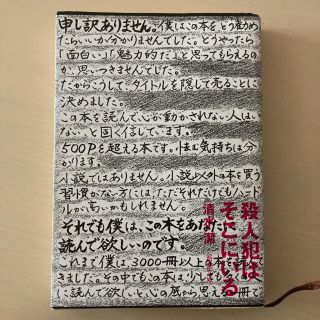 申し訳ありません。僕はこの本をどう勧め
たらいいか分かりませんでした。どうやったら
「面白い」「魅力的だ」と思ってもらえるの
か、思いつきませんでした。
だからこうして、タイトルを隠して売ることに
決めました。
この本を読んで心が動かされない人はい
ない、と固く信じています。
500Pを超える本です。怯む気持ちは分
かります。
小説ではありません。小説以外の本を買う
習慣がない方には、ただそれだけでもハード
ルが高いかもしれません。
それでも僕は、この本をあなたに
読んで欲しいのです。
これまで僕は3000冊以上本を読んで
きました。その中でもこの本は
に読んで欲しいと心の底から思える一冊で
殺人犯は
そこにいる
清水潔